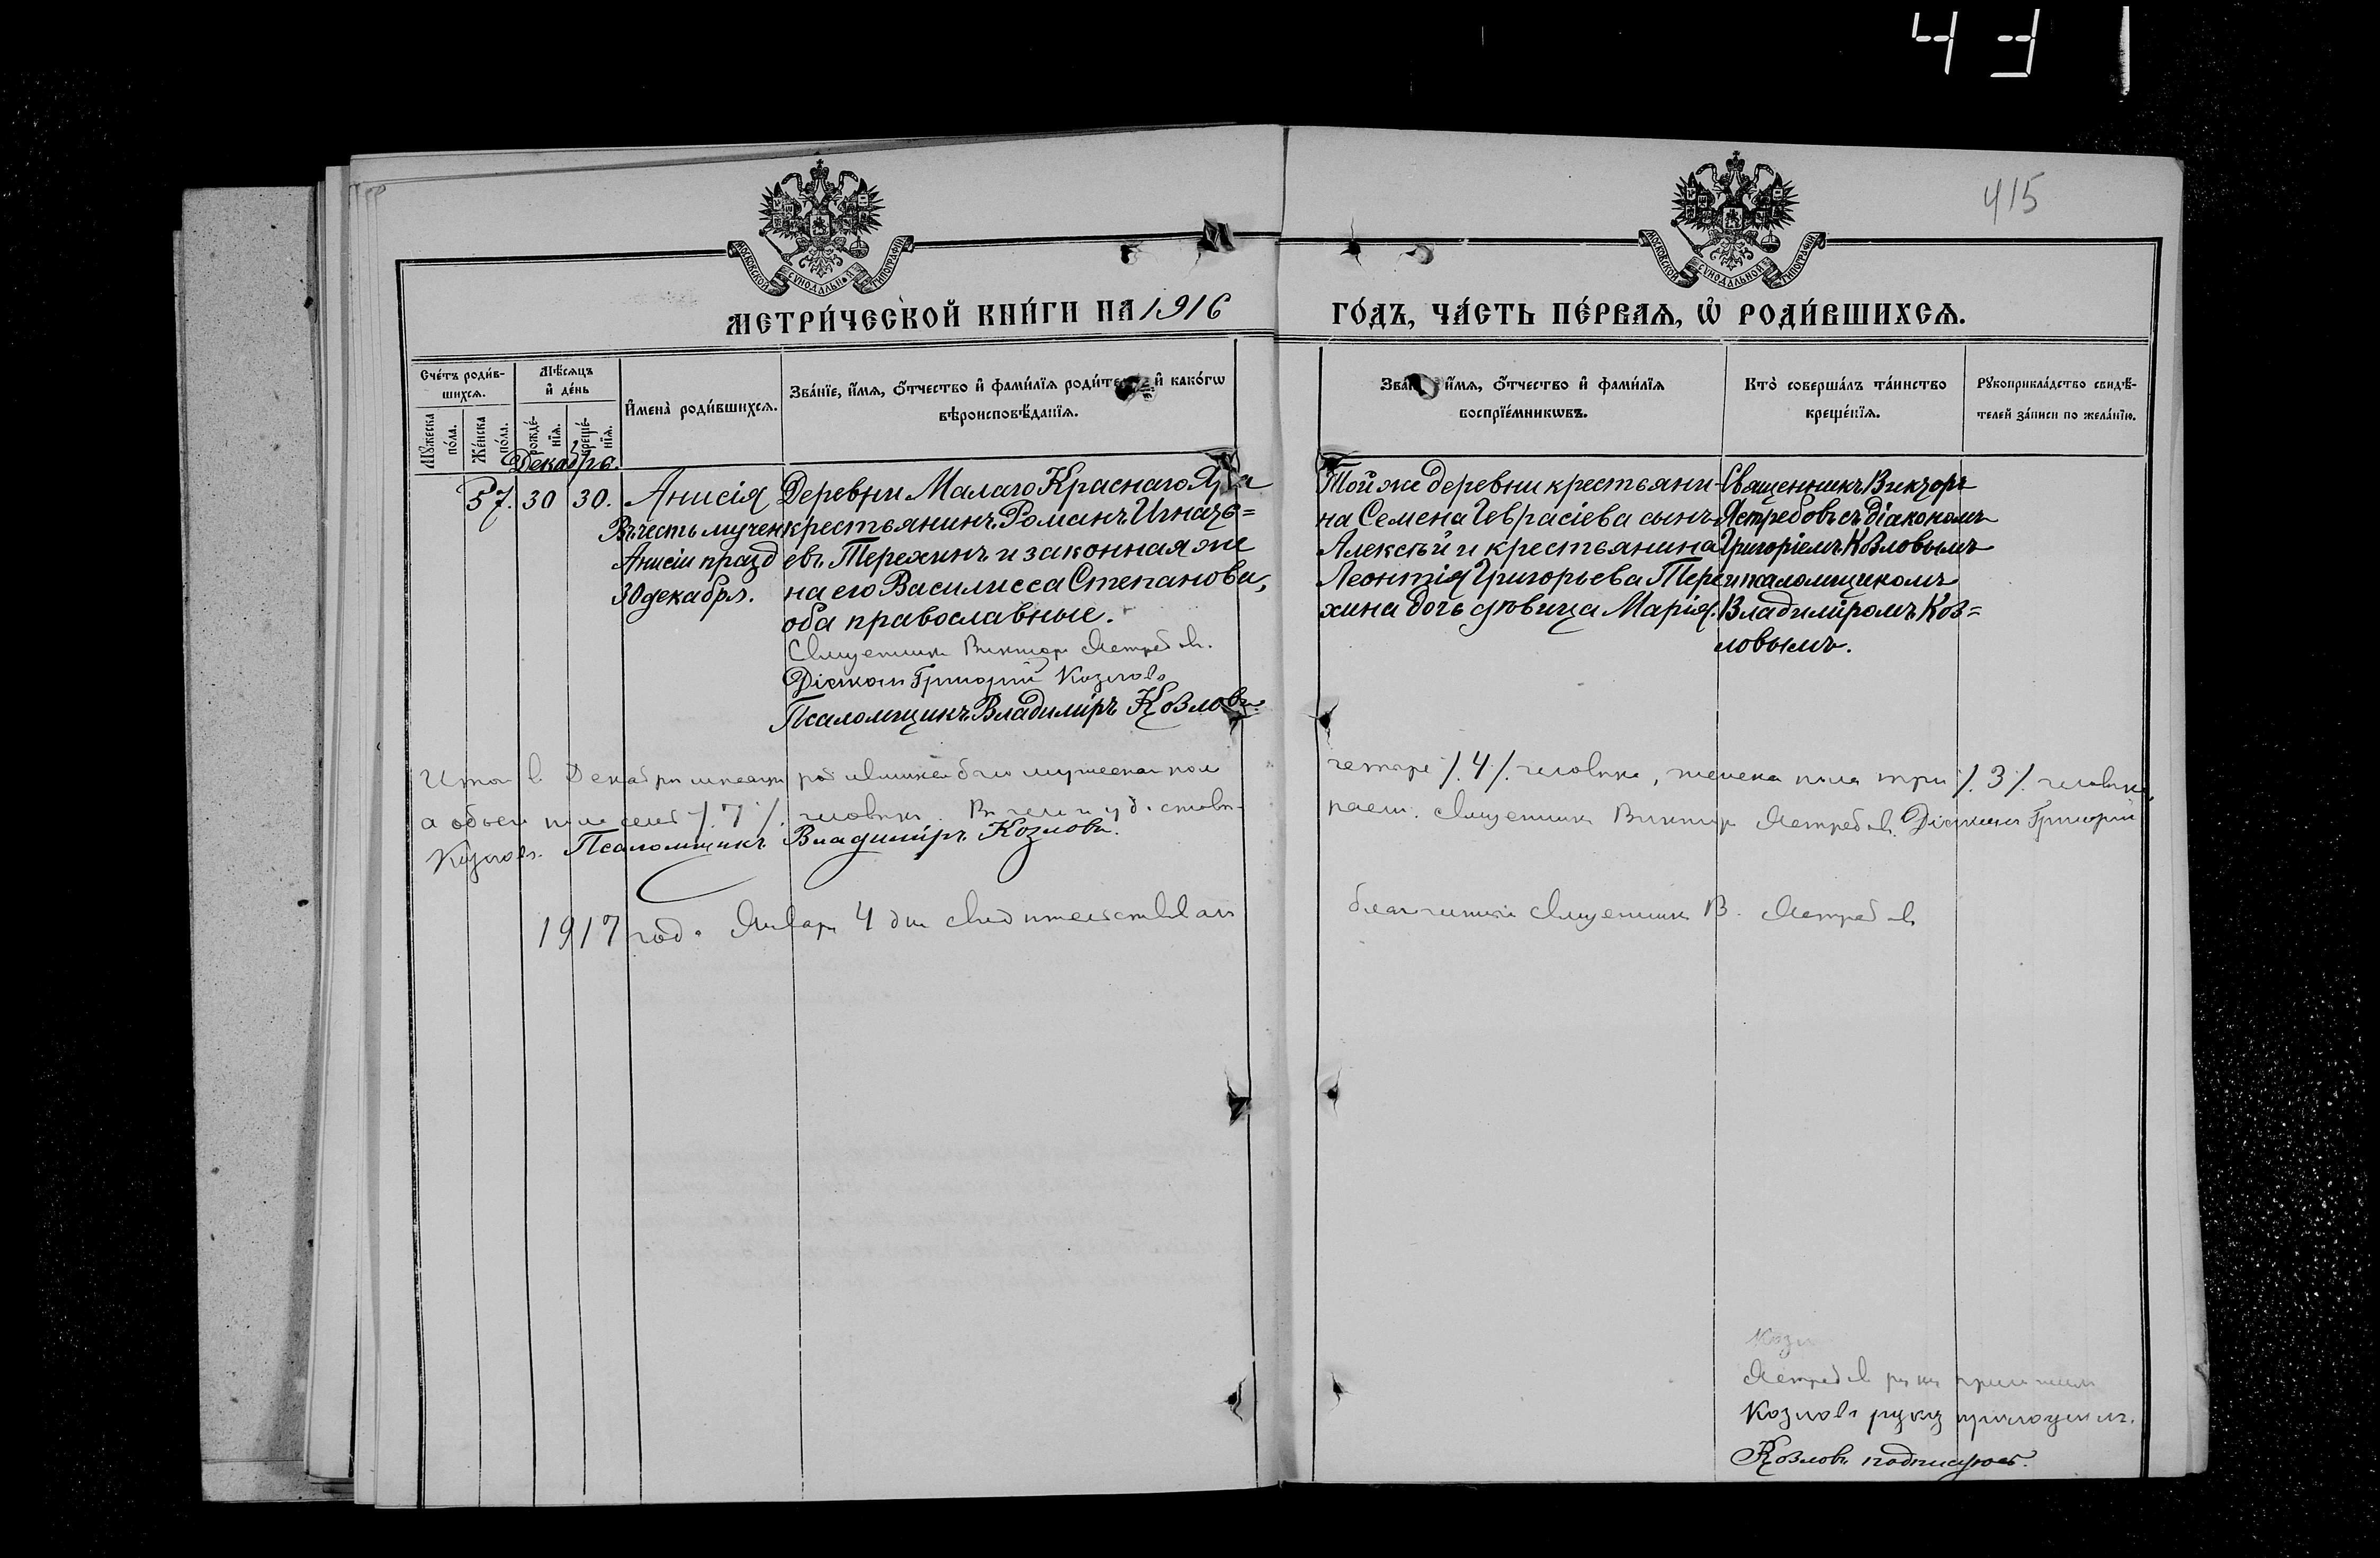 431
415
МОСКОВСКОЙ СѴНОДАЛЬНОЙ ТИПОГРАФІИ
МОСКОВСКОЙ СѴНОДАЛЬНОЙ ТИПОГРАФІИ
МЕТРИ́ЧЕСКОЙ КНИ́ГИ НА 1916 ГО́ДЪ, ЧА́СТЬ ПЕ́РВАѦ, Ѡ҆ РОДИ́ВШИХСѦ.
Сче́тъ роди́в-
шихсѧ.
Мѣ́сѧцъ
и҆ де́нь
Мꙋ́жеска
по́ла.
Же́нска
по́ла.
рожде́-
нїѧ.
креще́-
нїѧ.
И҆мена̀ роди́вшихсѧ.
Зва́нїе, и҆́мѧ, ѻ҆́тчество и҆ фами́лїѧ и҆ како́гѡ
вѣроисповѣ́данїѧ.
и҆́мѧ, ѻ҆́тчество и҆ фами́лїѧ
воспрїе́мникѡвъ.
Кто̀ соверша́лъ та́инство
креще́нїѧ.
Рꙋкоприкла́дство свидѣ́-
телей за́писи по жела́нїю.
Декабрь.
57. 30 30. Анисія
Въ честь мучен
Анисіи празд
30 декабря.
Деревни Малаго Краснаго Яра
крестьянинъ Романъ Игнать=
евъ Терехинъ и законная же
на его Василисса Степанова,
оба православные.
Священникъ Викторъ Ястребовъ.
Діаконъ Григорій Козловъ
Псаломщикъ Владиміръ Козловъ.
Той же деревни крестьяни-
на Семена Еврасіева сынъ
Алексѣй и крестьянина
Леонтія Григорьева Тере
хина дочь дѣвица Марія.
Священникъ Викторъ
Ястребовъ съ діакономъ
Григоріемъ Козловымъ
и псаломщикомъ
Владиміромъ Коз=
ловымъ.
Итого въ Декабрѣ мѣсяцѣ родившихся было мужеска пола четыре /.4/. человѣка, женска пола три /.3/. человѣка,
а обоего пола семь /.7/. человѣкъ. Въ чемъ и удостовѣ-
ряемъ. Священникъ Викторъ Ястребовъ. Діаконъ Григорій
Козловъ. Псаломщикъ Владиміръ Козловъ.
1917 года Января 4 дня свидѣтельствовалъ благочинный священникъ В. Ястребовъ
Козл
Ястребовъ руку приложилъ
Козловъ руку приложилъ.
Козловъ подписуюсь.